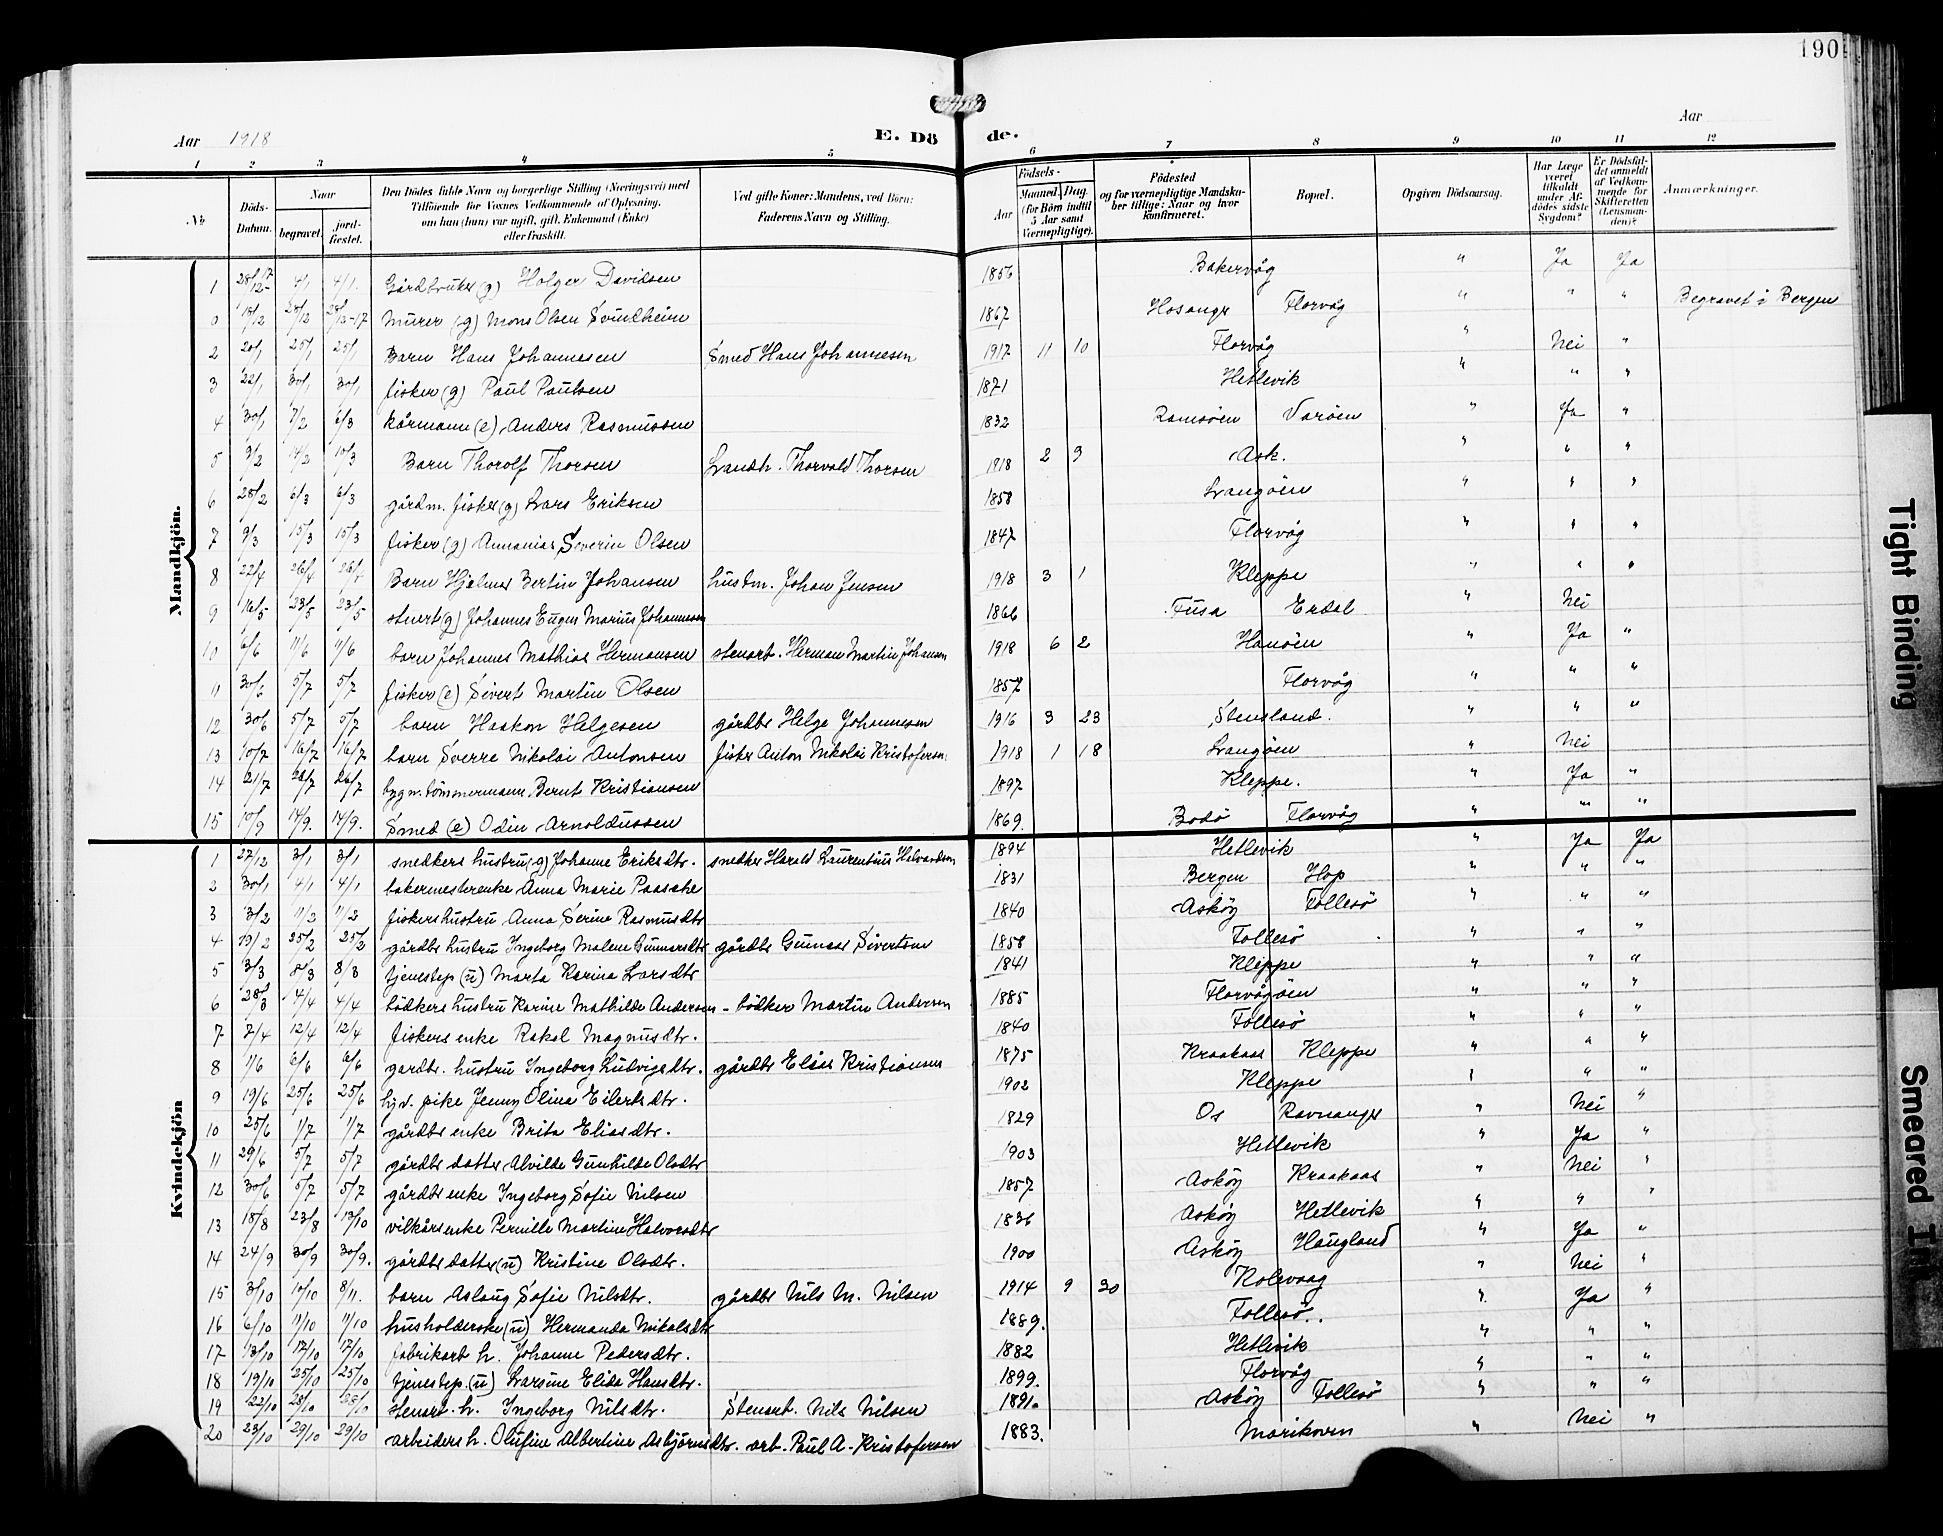 190
Aar 1918
E. Dö de.
Aar
1 2 3 4 5 6 7 8 9 10 11 12
No.
Döds-Datum.
Naar
begravet.
jord-fæstet.
Den Dödes fulde Navn og borgerlige Stilling (Næringsvei) med Tilföiende for Voxnes Vedkommende af Oplysning, om han (hun) var ugift, gift, Enkemand (Enke) eller fraskilt.
Ved gifte Koner: Mandens, ved Börn: Faderens Navn og Stilling.
Födsels-
Aar
Maaned. Dag.
(for Börn indtil 5 Aar samt Værnepligtige).
Födested og for værnepligtige Mandskaber tillige: Naar og hvor konfirmeret.
Bopæl.
Opgiven Dödsaarsag.
Har Læge været tilkaldt under Afdödes sidste Sygdom?
Er Dödsfaldet anmeldt af Vedkommende for Skifteretten (Lensmanden)?
Anmærkninger.
Mandkjön.
1 28/12-17 4/1 4/1. Gårdbruker (g) Holger Davidsen 1856 Bakervåg " Ja Ja
0 18/12 28/12 28/12-17 Murer (g) Mons Olsen Svindheim 1867 Hosanger Florvåg " " " Begravet i Bergen
2 20/1 25/1 25/1 Barn Hans Johannesen Smed Hans Johannesen 1917 11 10 Florvåg " Nei "
3 22/1 30/1 30/1 fisker (g) Paul Paulsen 1871 Hetlevik " " "
4 30/1 7/2 6/3 kårmann (e) Anders Rasmussen 1832 Ramsöen Varöen " Ja "
5 9/2 14/2 10/3 Barn Thorolf Thorsen Landh. Thorvald Thorsen 1918 2 9 Ask. " " "
6 28/2 6/3 6/3 gårdm. fisker (g) Lars Eriksen 1858 Langöen " " "
7 9/3 15/3 15/3 fisker (g) Annanias Severin Olsen 1847 Florvåg " " "
8 22/4 26/4 26/4 Barn Hjalmer Bertin Johansen husm. Johan Jensen 1918 3 1 Kleppe " " "
9 16/5 23/5 23/5 stuert (g) Johannes Eugen Marius Johannesen 1866 Fusa Erdal " Nei
10 6/6 11/6 11/6 barn Johannes Mathias Hermansen stenarb. Herman Martin Johansen 1918 6 2 Hanöen " Ja "
11 30/6 5/7 5/7 fisker (e) Sivert Martin Olsen 1857 Florvåg " " "
12 30/6 5/7 5/7 barn Haakon Helgesen gårdbr Helge Johannesen 1916 3 23 Stensland. " " "
13 10/7 16/7 16/7 barn Sverre Nikolai Antonsen fisker Anton Nikolai Kristofersen 1918 1 18 Langöen " Nei
14 21/7 26/7 26/7 bygm. tömmermann Bernt Kristiansen 1897 Kleppe. " Ja "
15 10/9 14/9. 14/9. Smed (e) Odin Arnoldussen 1869. Bodö Florvåg " " "
Kvindekjön
1 27/12 3/1 3/1 snedkers hustru (g) Johanne Eriksdtr. snedker Harald Laurentius Halvardsen 1894 Hetlevik " Ja Ja
2 30/1 4/1 4/1 bakermesterenke Anna Marie Paasche 1831 Bergen Hop " " "
3 3/2 11/2 11/2 fiskers hustru Anna Serine Rasmusdtr 1840 Asköy Follesö " " "
4 19/2 25/2 25/2 gårdbr hustru Ingeborg Malene Gunnarsdtr gårdbr Gunnar Sivertsen 1858 Follesö " " "
5 3/3 8/3 8/3 tjenestep (u) Marta Karina Larsdtr 1841 Kleppe " " "
6 28/3 4/4 4/4 bödkers hustru Karine Mathilde Andersen - bödker Martin Andersen 1885 Florvågöen " " "
7 7/4 12/4 12/4 fiskers enke Rakel Magnusdtr. 1840 Follesö " " "
8 1/6 6/6 6/6 gardbr. hustru Ingeborg Ludvigsdtr. gårdbr Elias Kristiansen 1875 Kraakaas Kleppe " " "
9 19/6 25/6 25/6 pike Jenny Olina Eilertsdtr. 1902 Kleppe " " "
10 25/6 1/7 1/7 gårdbr enke Brita Eliasdtr. 1829 Os Ravnanger " Nei "
11 29/6 5/7 5/7 gårdbr datter Alvilde Gunhilde Olsdtr 1903 Hetlevik " Ja "
12 30/6 5/7 5/7 gårdbr enke Ingeborg Sofie Nilsen 1857 Asköy Kraakaas " Nei "
13 18/8 23/8 13/10 vilkårsenke Pernille Martine Halvorsdtr 1836 Asköy Hetlevik " " "
14 24/9 30/9 30/9. gårdbr datter (u) Kristine Olsdtr. 1900 Asköy Haugland " Ja "
15 3/10 10/10 8/11. barn Aslaug Sofie Nilsdtr. gårdbr Nils M. Nilsen 1914 9 30 Kolevaag " Nei "
16 6/10 11/10 11/10 husholderske (u) Hermanda Nikolsdtr 1889. Follesö.. " Ja "
17 13/10 17/10 17/10 fabrikarb h. Johanne Pedersdtr. 1882 Hetlevik " " "
18 19/10 25/10 25/10 tjenestep. (u) Larsine Elida Hansdtr. 1899. Florvåg " " "
19 22/10 28/10 stenarb. h. Ingeborg Nilsdtr. Stenarb. Nils Nilsen 1891. Asköy Follesö " " "
20 23/10 29/10 29/10 arbeiders h. Olufine Albertine Asbjörnsdtr. arb. Paul A. Kristofersen 1883. Marikoven " Nei "
Tight Binding
Smeared Ink